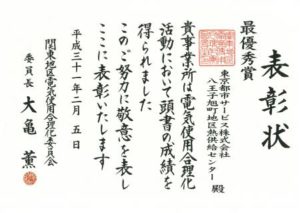 表彰状
最優秀賞
東京都市サービス株式会社
八王子旭町地区熱供給センター 殿
貴事業所は電気使用合理化
活動において頭書の成績を
得られました
このご努力に敬意を表し
ここに表彰いたします
平成三十一年二月五日
関東地区電気使用合理化委員会
委員長 大亀 薫